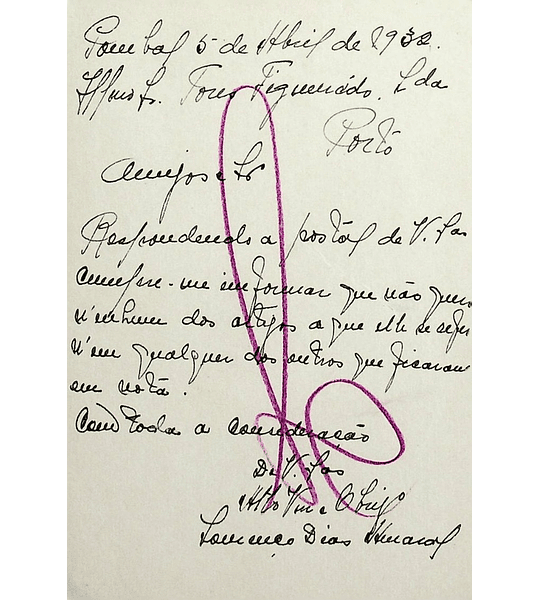 Pombal 5 de Abril de 1932.
Illmos Srs. Torres Figueirêdo. Lda
Porto
Amigos e Srs
Respondendo a postal de V. Sas
cumpre-me informar que não quero
n'enhum dos artigos a que elle se refere
n'em qualquer dos outros que ficaram
em nota.
Com toda a consideração
De V. Sas
Atto Vnr e Obrigo
Lourenço Dias Amaral